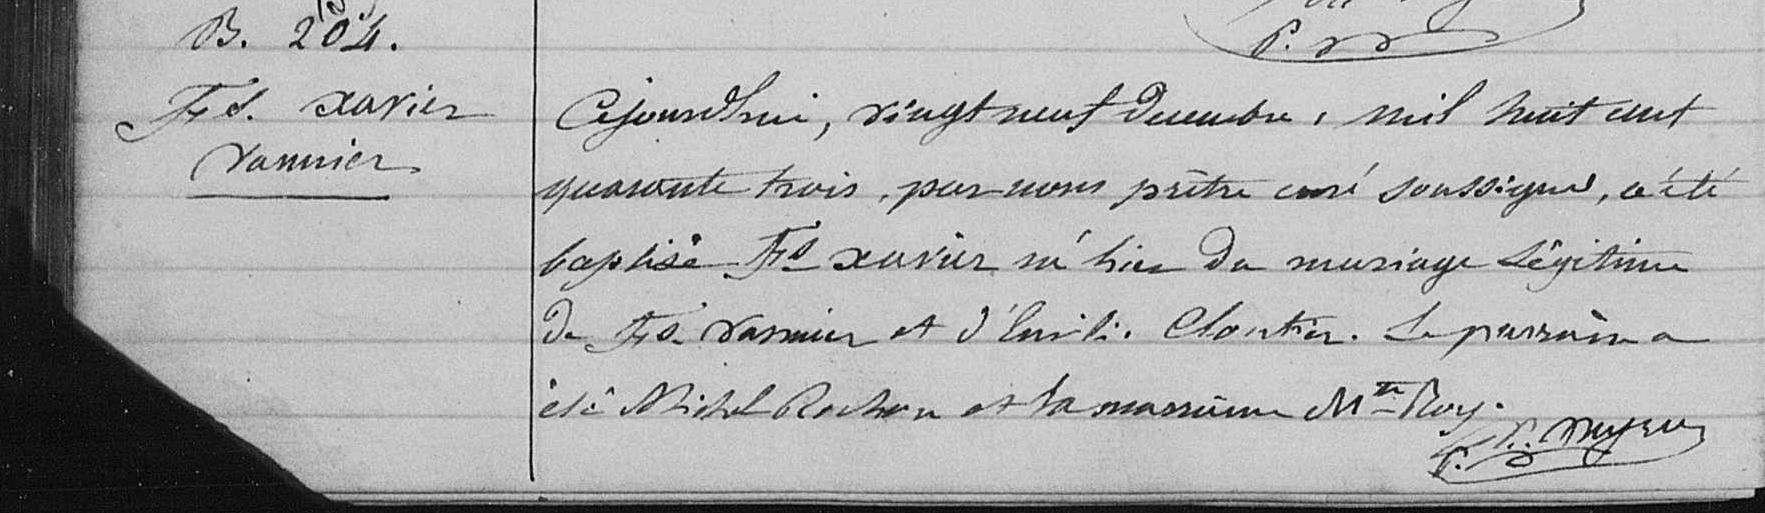 B. 204.
P.
Fs. xavier
Vannier
Cejourdhui, vingt neuf Decembre, mil huit cent
quarante trois, par nous prêtre curé soussigné, a été
baptisé Fs xavier né hier du mariage légitime
De Fs. Vannier et d'Emili. Cloutier. Le parrain a
été Michel Rochon et la marraine Mte Roy.